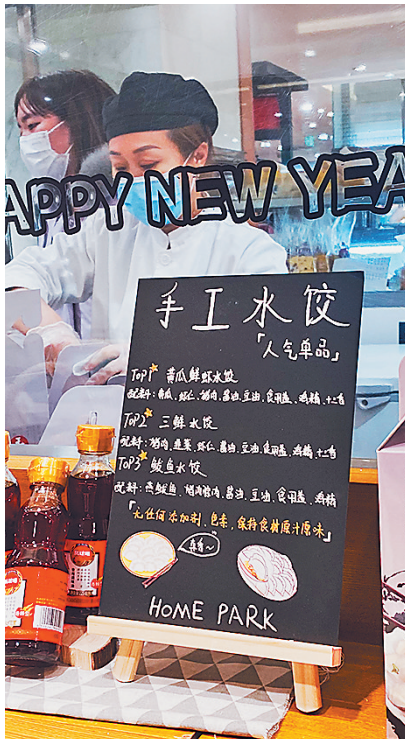 APPY NEW YEA
手工水饺
「人气单品」
TOP1 黄瓜鲜虾水饺
配料：黄瓜、虾仁、猪肉、酱油、豆油、食用盐、鸡精、十三香
TOP2 三鲜水饺
配料：猪肉、韭菜、虾仁、酱油、豆油、食用盐、鸡精、十三香
TOP3 鲅鱼水饺
配料：燕鲅鱼、猪肉、酱油、豆油、食用盐、鸡精
「无任何添加剂、色素，保持食材原汁原味」
HOME PARK